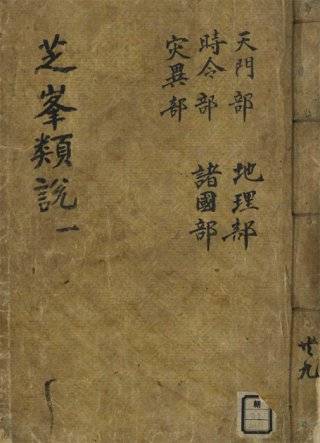 天門部 地理部
時令部 諸國部
灾異部
芝峯類說 一
共九
朝